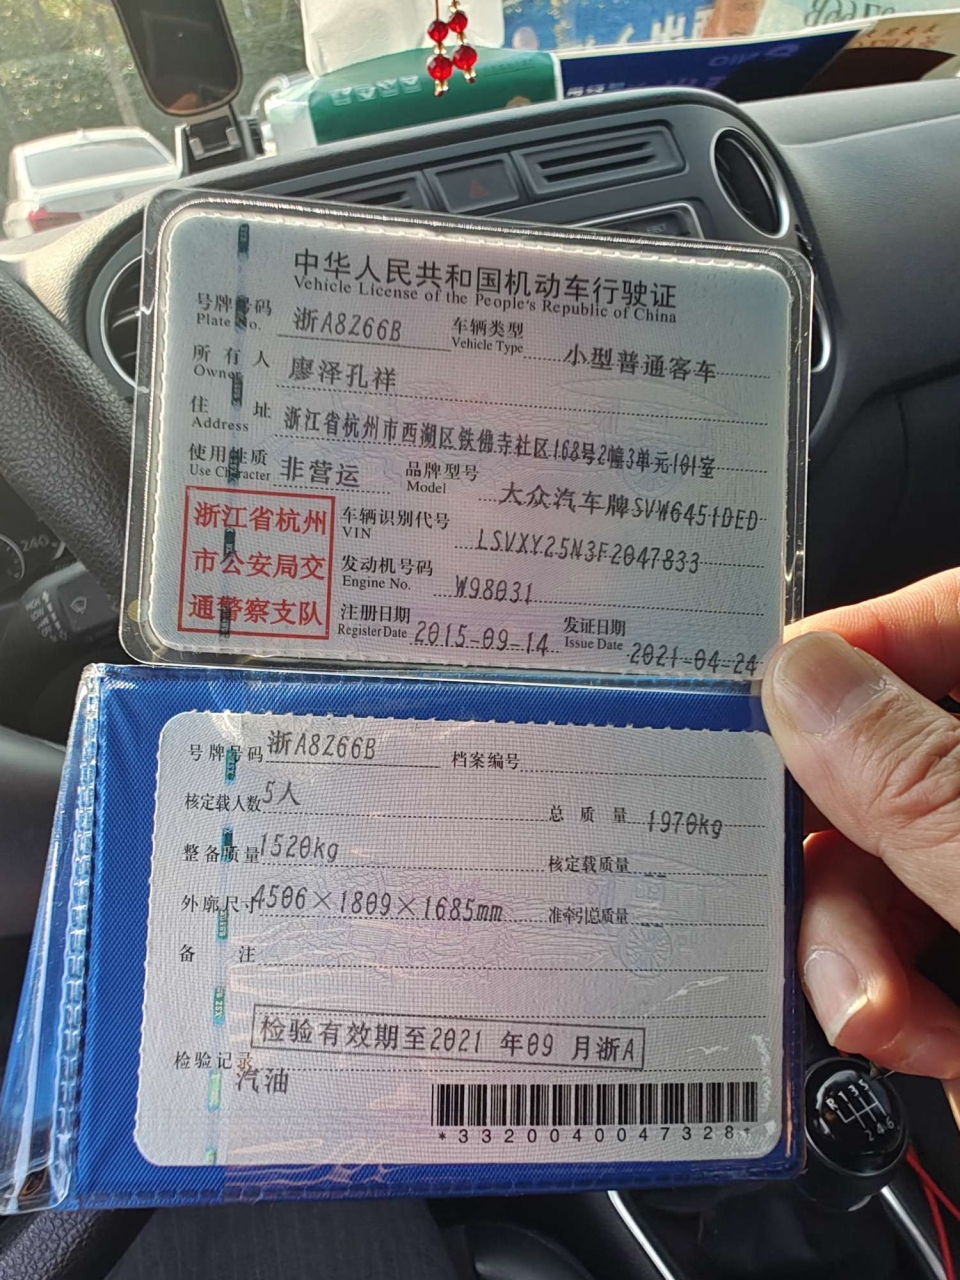 中华人民共和国机动车行驶证
Vehicle License of the People's Republic of China
号牌号码 浙A8Z66B 车辆类型 小型普通客车
Plate No. Vehicle Type
所有人 廖泽孔祥
Owner
住址 浙江省杭州市西湖区铁佛寺社区168号2幢3单元101室
Address
使用性质 非营运 品牌型号 大众汽车牌SVW6451DED
Use Character Model
浙江省杭州
市公安局交
通警察支队
车辆识别代号 LSVXY25N3F2047833
VIN
发动机号码 W98031
Engine No.
注册日期 2015-09-14 发证日期 2021-04-24
Register Date Issue Date
号牌号码 浙A8Z66B 档案编号
核定载人数 5人 总质量 1970kg
整备质量 1520kg 核定载质量 --
外廓尺寸 4506×1809×1685mm 准牵引总质量 --
备注
检验有效期至2021 年09 月浙A
检验记录
汽油
*3320040047328*
240
R 1 3 5
2 4 6